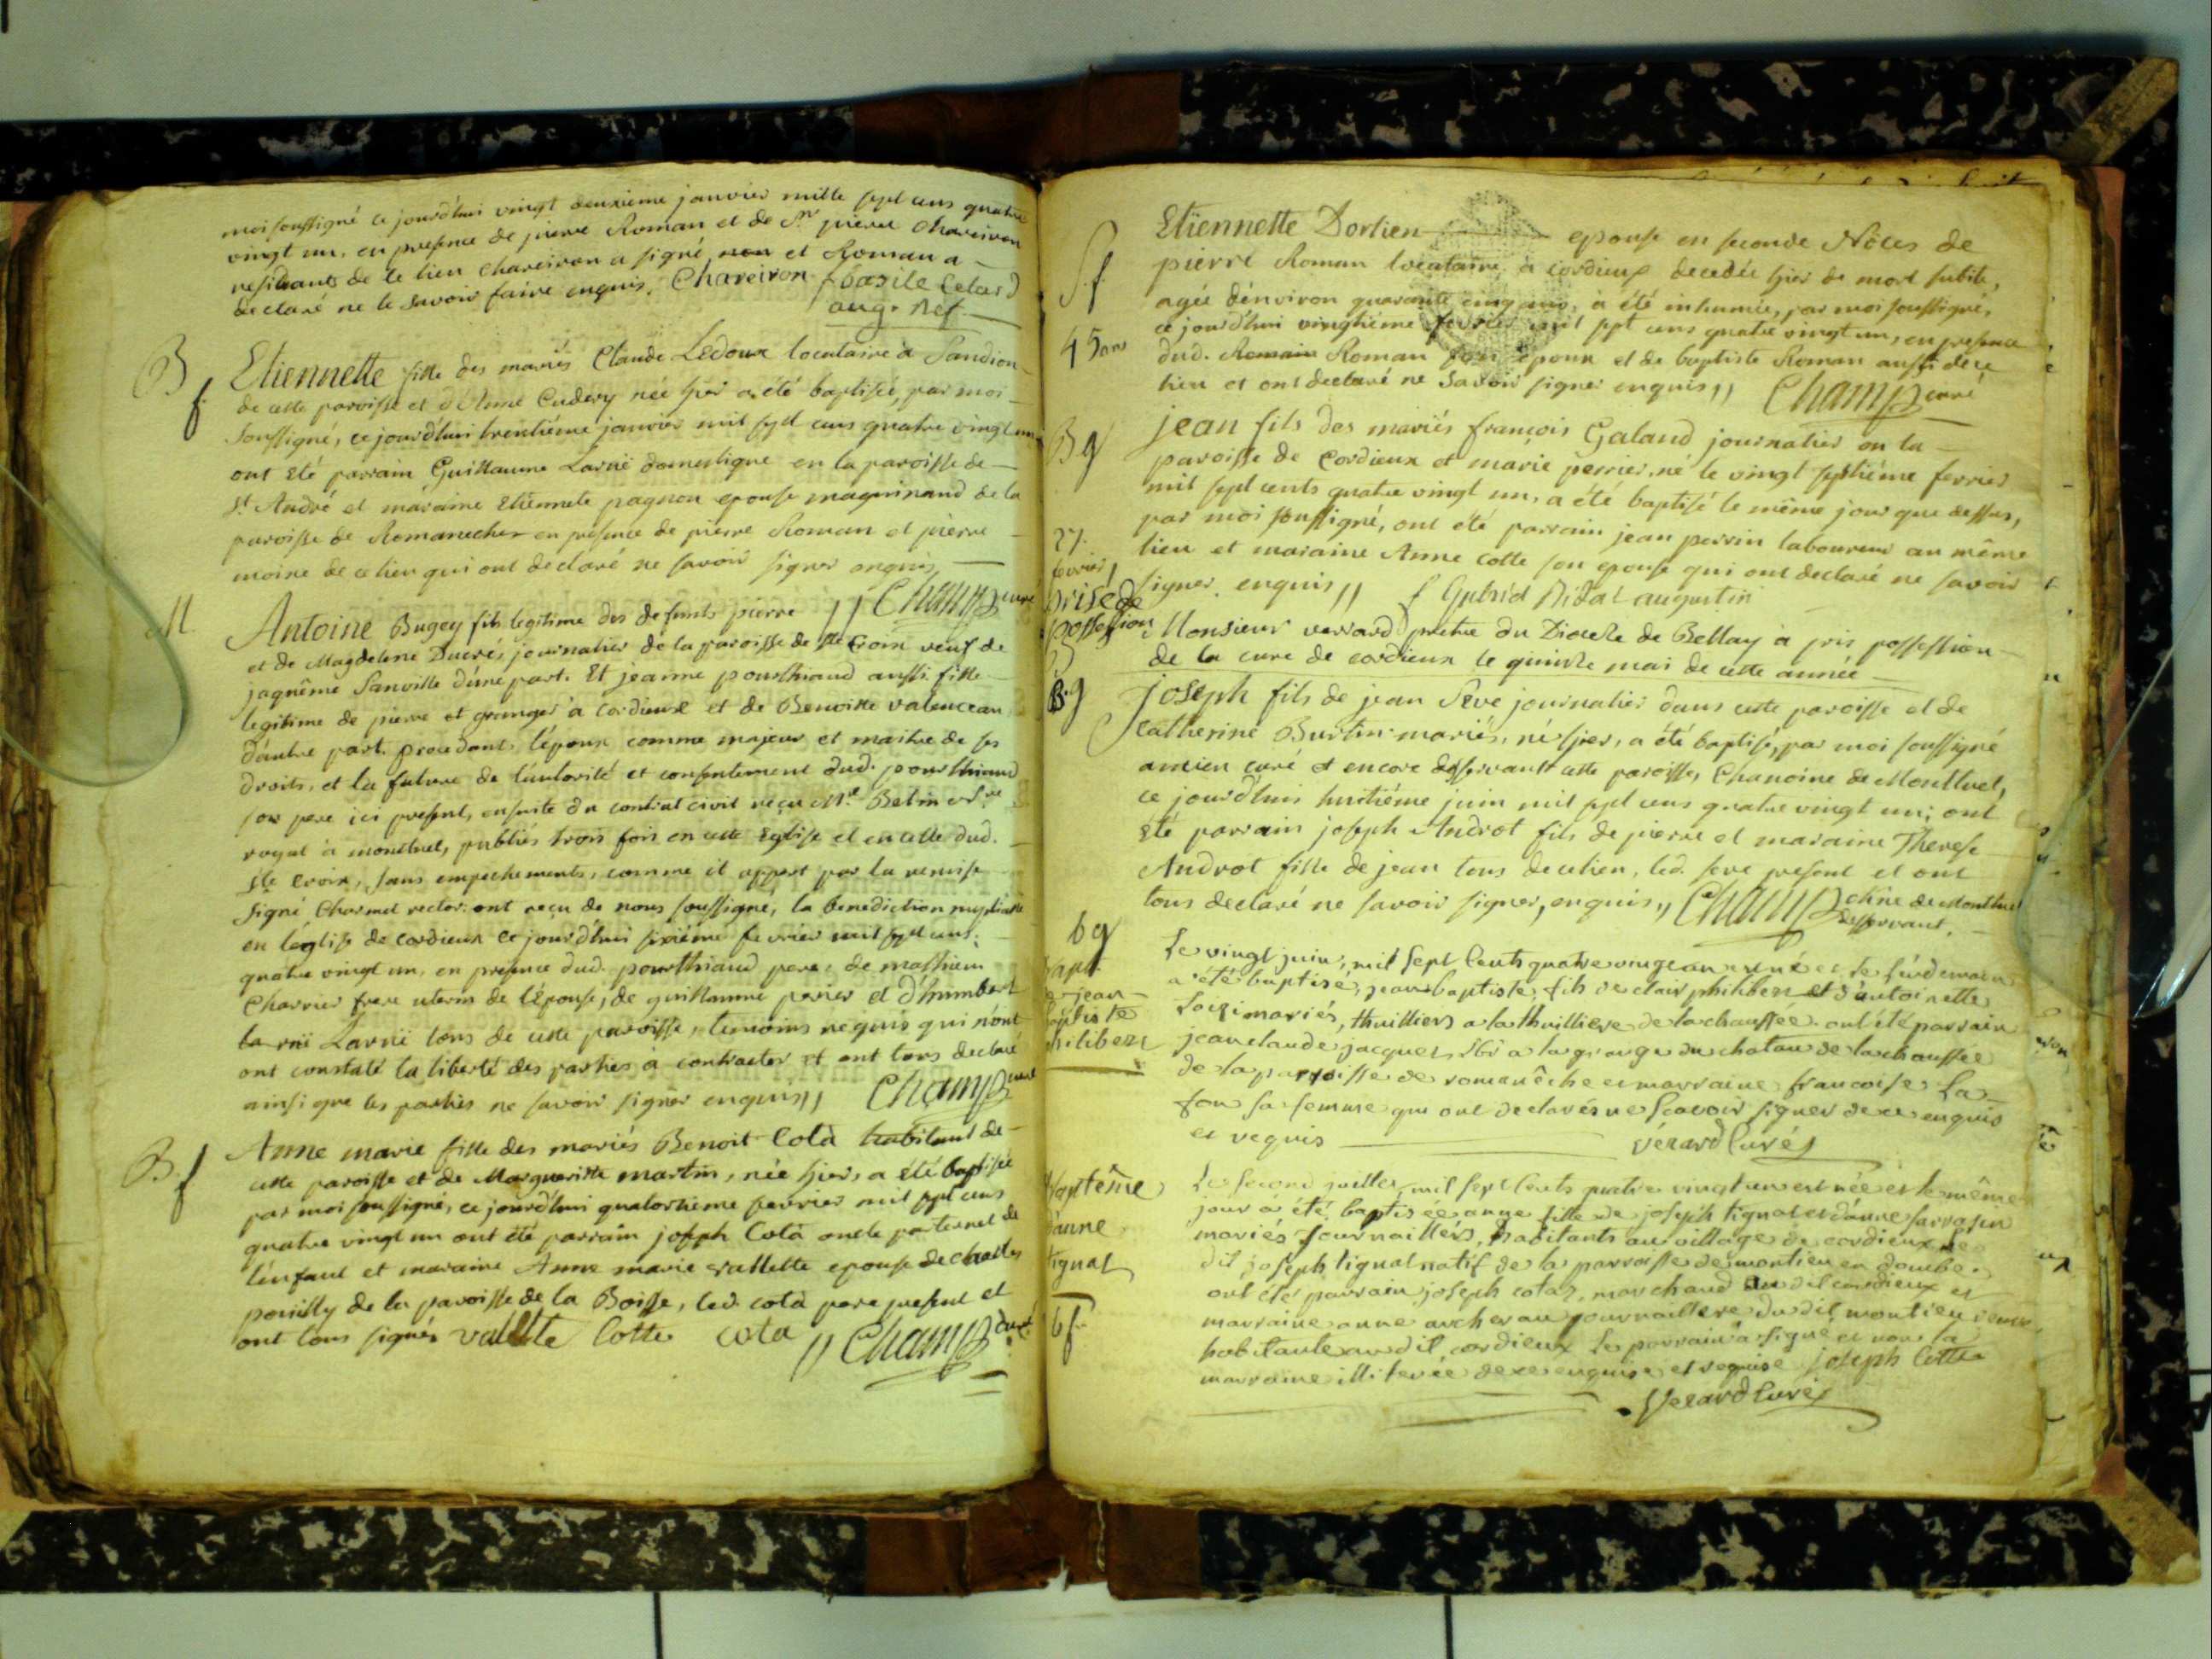 moi soussigné ce jourd'hui vingt deuxieme janvier mille sept cens quatre
vingt un, en presence de pierre Roman et de Sr pierre Chareiron
residants de ce lieu Chareiron a signé non et Roman a
declaré ne le savoir faire enquis. Chareiron f basile Celard
aug. Ref.
B
f
Etiennette fille des mariés Claude Ledoux locataire à Sandion
de cette paroisse et d'Anne Cudery née hier a été baptisée, par moi
soussigné, ce jourd'hui trentiéme janvier mil sept cens quatre vingt un
ont été parrain Guillaume Larüe domestique en la paroisse de
St André et maraine Etiennete pagnon epouse maguinand de la
paroisse de Romaneches en presence de pierre Roman et pierre
moine de ce lieu qui ont declaré ne savoir signer enquis
M.
Antoine Bugey fils legitime des defunts pierre // Champ curé
et de Magdeleine Ducrés, journalier de la paroisse de Ste Croix veuf de
jaquême Sanville d'une part. Et jeanne pourthiaud aussi fille
legitime de pierre et granger à Cordieux et de Benoitte valencean
d'autre part. procedants l'époux comme majeur et maitre de ses
droits, et la future de l'autorité et consentement dud. pourthiaud
son pere ici present, ensuite du contrat civil reçu Me Belin Nre
royal à montluel, publiés trois fois en cette Eglise et en celle dud.
Ste Croix, sans empechements, comme il appert par la remise
signé Charmel rector: ont reçu de nous soussigné, la benediction nuptiale
en léglise de cordieux ce jourd'hui sixiéme fevrier mil sept cens
quatre vingt un, en présence dud. pourthiaud pere, de mathieu
Charvier frere uterin de l'épouse, de guillaume perier et d'humbert
la rüi Larüi tous de cette paroisse, temoins requis qui n'ont
ont constaté la liberté des parties à contracter et ont tous declaré
ainsi que les parties ne savoir signer enquis // Champ curé
B.f
Anne marie fille des mariés Benoit Cotà habitant de
cette paroisse et de Margueritte martin, née hier, a été baptisée
par moi soussigné, ce jourd'hui quatorzieme fevrier mil sept cens
quatre vingt un ont été parrain joseph Cotà oncle paternel de
l'enfant et maraine Anne marie vallette epouse de charles
pouilly de la paroisse de la Boisse, led. cotà pere present et
ont tous signés valette Cotte cota // Champ curé
S.f
45 ans
Etiennette Dortien epouse en seconde Nôces de
pierre Roman locataire à cordieux decedée hier de mort subite,
agée d'énviron quarante cinq ans, à été inhumée, par moi soussigné,
ce jourd'hui vinghiéme fevrier mil sept cens quatre vingt un, en presence
dud. Romain Roman son époux et de baptiste Roman aussi de ce
lieu et ont declaré ne savoir signer enquis // Champ curé
Bg
27.
fevrier
jean fils des mariés françois Galand journalier en la
paroisse de Cordieux et marie perrier, né le vingt septiéme fevrier
mil sept cents quatre vingt un, a été baptisé le même jour que dessus,
par moi soussigné, ont été parrain jean perrin laboureur au même
lieu et maraine Anne Cotte son epouse qui ont declaré ne savoir
signer enquis // f Gabriel Nidal augustin
prise de
possession
Monsieur verrard prêtre du Diocèse de Bellay à pris possession
de la cure de cordieux le quinze mai de cette année
B.g
joseph fils de jean Seve journalier dans cette paroisse et de
Catherine Burtin mariés, né hier, a été baptisé, par moi soussigné
ancien curé et encore désservant cette paroisse, Chanoine de Montluel,
ce jourd'hui huitiéme juin mil sept cens quatre vingt un; ont
été parrain joseph Androt fils de pierre et maraine Therese
Androt fille de jean tous de ce lieu, led. seve present et ont
tous declaré ne savoir signer, enquis, // Champ chne de Montluel
desservant.
bg
bapt.
de jean
baptiste
philibert
Le vingt juin, mil sept Cents quatre vingt un est né et le lendemain
a été baptisé, jean baptiste, fils de clair philibert et d'antoinette
mariés, thuilliers a la thuilliere de la chaussée. ont été parrain
jean claude jacquet a la grange du chateau de la chaussée
de la parroisse de romanêche et marraine francoise La-
fon sa femme qui ont declarés ne scavoir signer de ce enquis
et requis Vérard Curé
Baptême
d'anne
tignat
bf.
Le second juillet, mil sept Cents quatre vingt un est née et le même
jour a été baptisée anne fille de joseph tignat et d'anne sarrasin
mariés journailliers, habitants au village de cordieux le
dit joseph tignat natif de la parroisse de montieu en dombe.
ont été parrain joseph cotas, marchand au dit cordieux et
marraine anne archerau journailliere dudit montieu
habitante audit cordieux le parrain a signé et non la
marraine illiterée de ce enquise et requise joseph Cotte
Verard Curé